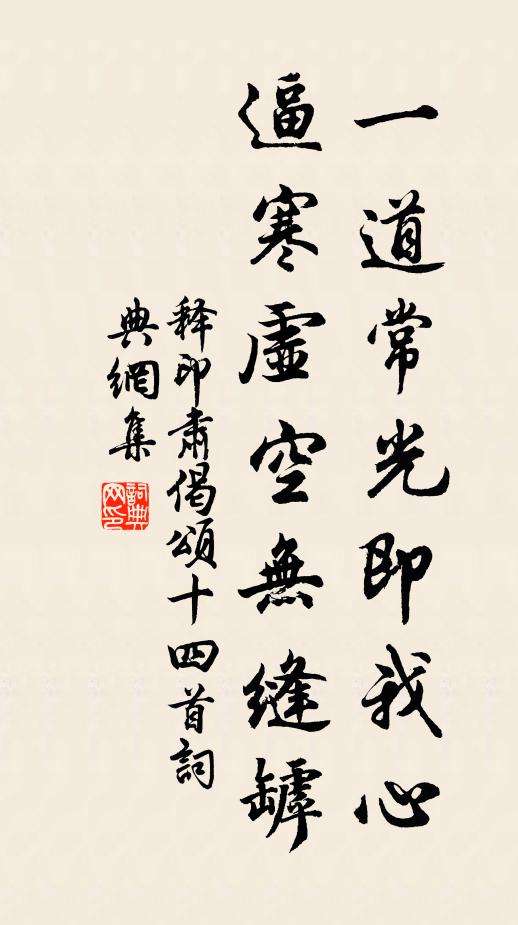 一道常光即我心
逼寒虛空無縫罅
释印肅偈頌十四首詞
典網集
詞典
网印